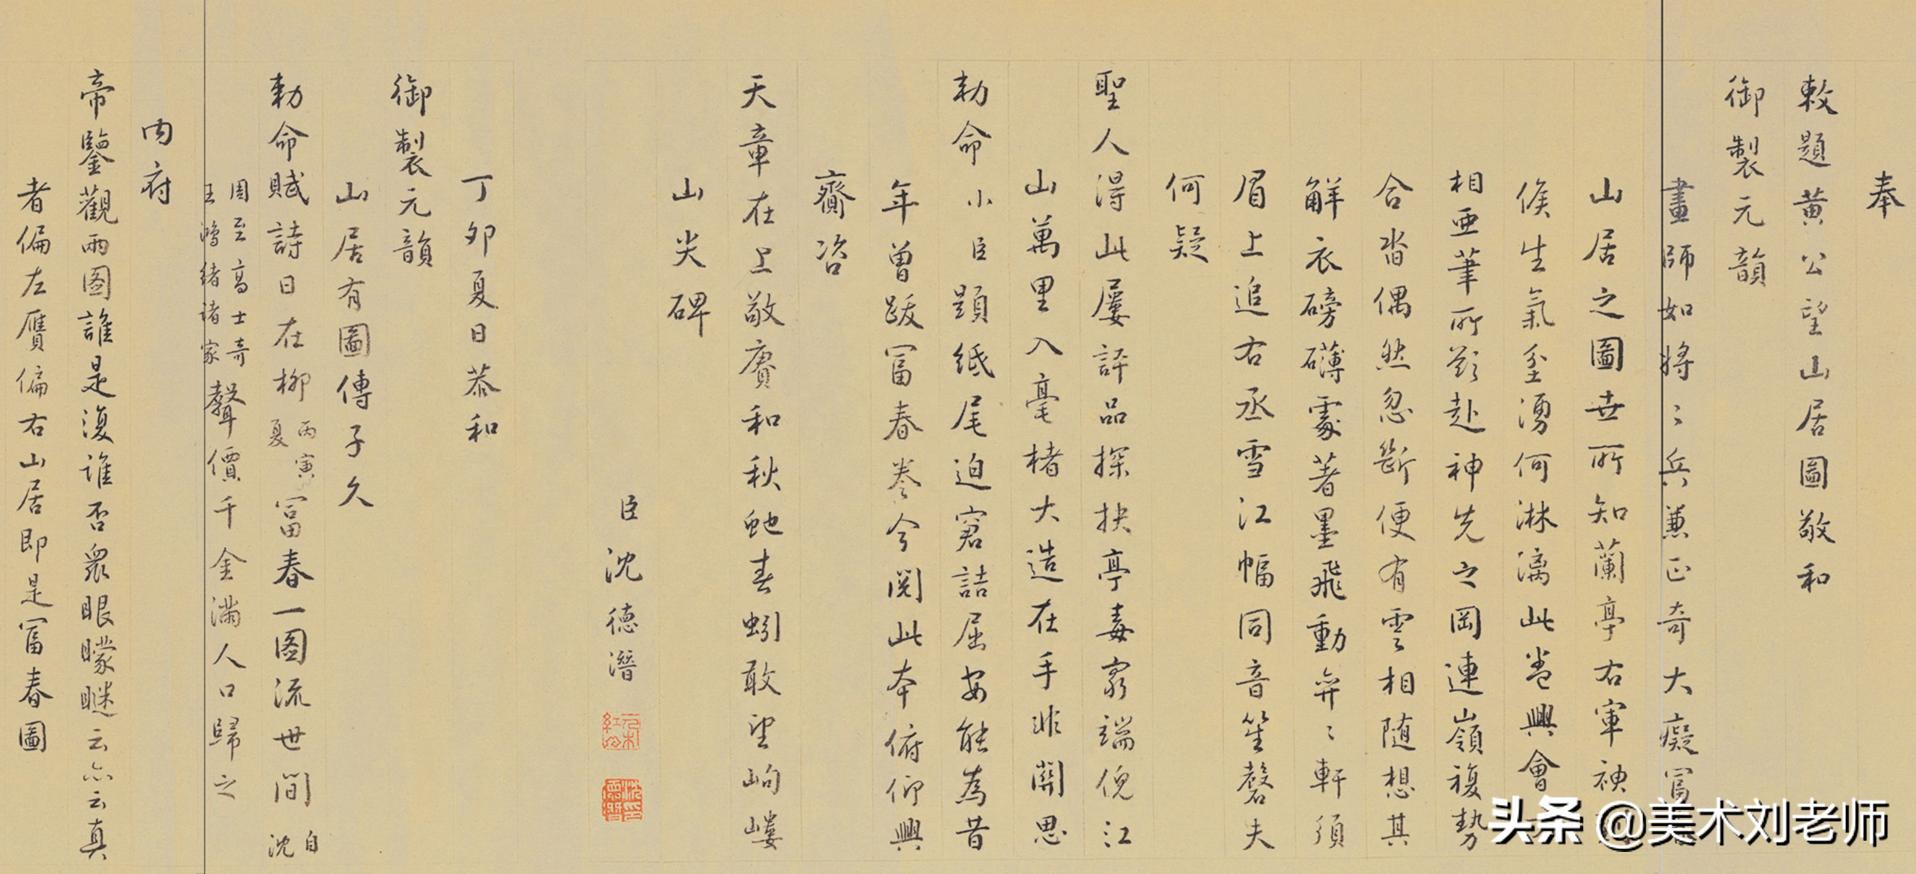 奉
敕題黄公望山居圖敬和
御製元韻
畫師如將〻兵兼正奇大癡富
山居之圖世所知蘭亭右軍神
候生氣坌湧何淋漓此卷興會
相亜筆所到赴神先之岡連嶺複勢
合沓偶然忽斷便有雲相随想其
解衣磅礴處著墨飛動弈〻軒須
眉上追右丞雪江幅同音笙磬夫
何疑
聖人得此屢評品探抉亭毒窮端倪江
山萬里入毫楮大造在手非關思
勅命小臣題紙尾迫窘詰屈安能為昔
年曾跋冨春卷今閱此本俯仰興
齎咨
天章在上敬賡和秋虵春蚓敢望岣嶁
山尖碑
臣沈德潛
丁卯夏日恭和
御製元韻
山居有圖傳子久
勅命賦詩日在柳丙寅夏冨春一图流世間自沈
周至高士奇王鴻緒諸家聲價千金滿人口歸之
内府
帝鑒觀兩图誰是復誰否衆眼矇瞇云亦云真
者偏左贋偏右山居即是冨春圖
头条 @美术刘老师